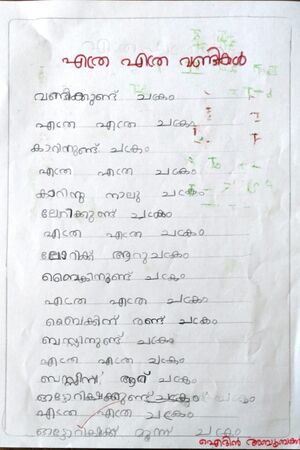 എത്ര എത്ര വണ്ടികൾ
വണ്ടിക്കുണ്ട് ചക്രം
എത്ര എത്ര ചക്രം
കാറിനുണ്ട് ചക്രം
എത്ര എത്ര ചക്രം
കാറിനു നാലു ചക്രം
ലോറിക്കുണ്ട് ചക്രം
എത്ര എത്ര ചക്രം
ലോറിക്ക് ആറുചക്രം
ബൈക്കിനുണ്ട് ചക്രം
എത്ര എത്ര ചക്രം
ബൈക്കിന് രണ്ട് ചക്രം
ബസ്സിനുണ്ട് ചക്രം
എത്ര എത്ര ചക്രം
ബസ്സിന് ആറ് ചക്രം
ഓട്ടോറിക്ഷക്കുണ്ട് ചക്രം
എത്ര എത്ര ചക്രം
ഓട്ടോറിക്ഷക്ക് മൂന്ന് ചക്രം